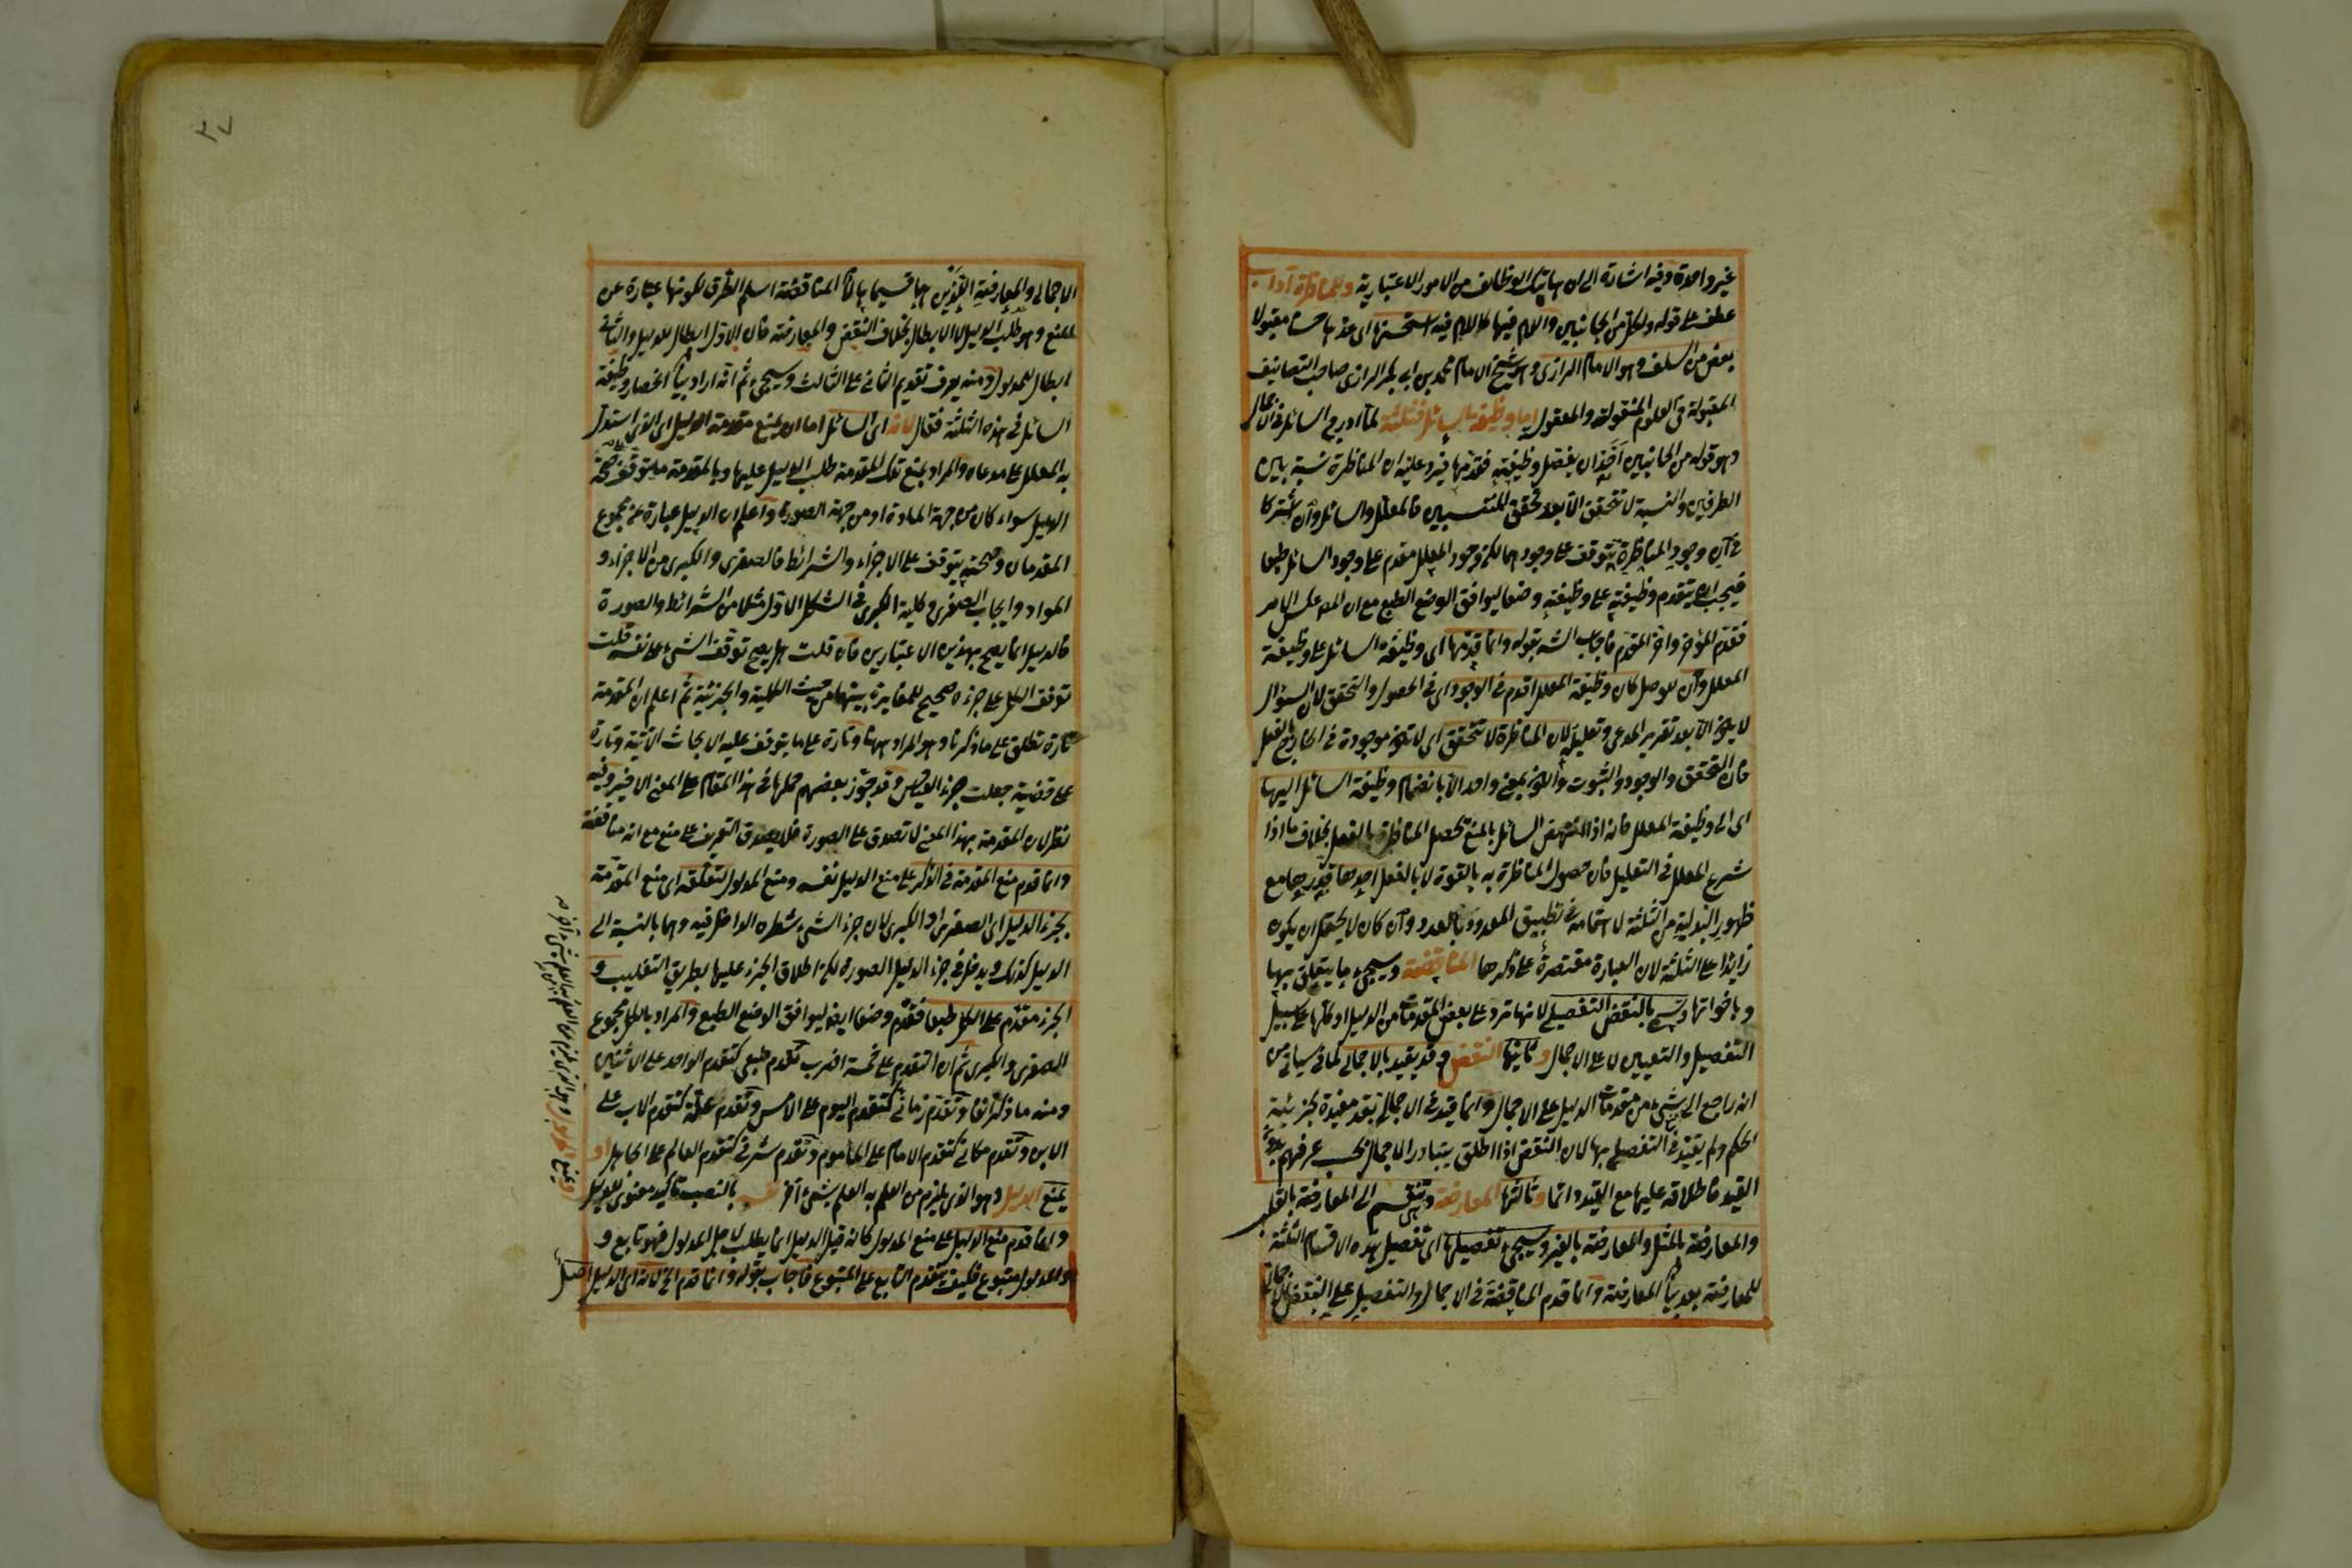 غير واحدة وفيه اشارة الى ان هاتيك الوظائف من الامور الاعتبارية وللمناظرة آداب
عطف على قوله ولكل من الجانبين واللام فيها كاللام فيه استحسنها اى عدها حسنا مقبولا
بعض من السلف وهو الامام الرازى وهو الشيخ الامام محمد بن ابى بكر الرازى صاحب التصانيف
المقبولة فى العلوم المنقولة والمعقولة اما وظيفة السائل فثلثة لما ادرج السائل فى الاجمال
وهو قوله من الجانبين اخذ ان يفصل وظيفته فقدمها فيرد عليه ان المناظرة نسبة بين
الطرفين والنسبة لا تتحقق الا بعد تحقق المنتسبين فالمعلل والسائل وان اشتركا
فى ان وجود المناظرة يتوقف على وجودهما لكن وجود المعلل مقدم على وجود السائل طبعا
فيجب ان يتقدم وظيفته على وظيفته وضعا ليوافق الوضع الطبع مع ان المص عكس الامر
فقدم المؤخر واخر المقدم فاجاب الش بقوله وانما قدمها اى وظيفة السائل على وظيفة
المعلل وان كان وظيفة المعلل اقدم فى الوجود اى فى الحصول والتحقق لان السؤال
لا يكون الا بعد تقرير المدعى وتعليله لان المناظرة لا تتحقق اى لا تكون موجودة فى الخارج بالفعل
فان التحقق والوجود والثبوت والكون بمعنى واحد الا بانضمام وظيفة السائل اليها
اى الى وظيفة المعلل فانه اذا انتهض السائل بالمنع تحصل المناظرة بالفعل بخلاف ما اذا
شرع المعلل فى التعليل فان حصول المناظرة به بالقوة لا بالفعل احدها قدرها مع
ظهور البدلية من الثلثة لاهتمامه فى تطبيق المعدود بالعدد وان كان لا يحتمل ان يكون
زائدا على الثلثة لان العبارة مقتصرة على ذكرها المناقضة وسيجئ ما يتعلق بها
وباخواتها وتسمى بالنقض التفصيلى لانها ترد على بعض المقدمات من الدليل او كلها على سبيل
التفصيل والتعيين لا على الاجمال وثانيها النقض وقد يقيد بالاجمالى لما سيأتى من
انه راجع الى شئ من مقدمات الدليل على الاجمال وانما قيد فى الاجمالى بقد مفيدة لجزئية
الحكم ولم يقيد فى التفصيلى بها لان النقض اذا اطلق يتبادر الاجمالى بحسب عرفهم بدون
القيد فاطلاقه عليها مع القيد دائما وثالثها المعارضة وتنقسم الى المعارضة بالقلب
والمعارضة بالمثل والمعارضة بالغير وسيجئ تفصيلها اى تفصيل هذه الاقسام الثلثة
للمعارضة بعد بيان المعارضة وانما قدم المناقضة فى الاجمال والتفصيل على النقض الاجمالى
الاجمالى والمعارضة اللذين هما قسيما بان المناقضة اسلم الطرق لكونها عبارة عن
المنع وهو طلب الدليل لا الابطال بخلاف النقض والمعارضة فان الاول ابطال للدليل والثانى
ابطال للمدلول ومنه يعرف تقديم الثانى على الثالث وسيجئ ثم انه اراد بيان انحصار وظيفة
السائل فى هذه الثلثة فقال لانه اى السائل اما ان يمنع مقدمة الدليل اى الذى استدل
به المعلل على مدعاه والمراد بمنع تلك المقدمة طلب الدليل عليها وبالمقدمة ما يتوقف صحة
الدليل سواء كان من جهة المادة او من جهة الصورة واعلم ان الدليل عبارة عن مجموع
المقدمات وصحته يتوقف على الاجزاء والشرائط فالصغرى والكبرى من الاجزاء و
المواد وايجاب الصغرى وكلية الكبرى فى الشكل الاول مثلا من الشرائط والصورة
فالدليل انما يصح بهذين الاعتبارين فان قلت هل يصح توقف الشئ على نفسه قلت
توقف الكل على جزءه صحيح للمغايرة بينهما من حيث الكلية والجزئية ثم اعلم ان المقدمة
تارة تطلق على ما ذكرنا وهو المراد ههنا وتارة على ما يتوقف عليه الابحاث الآتية وتارة
على قضية جعلت جزء القياس وقد جوز بعضهم حملها فى هذا المقام على المعنى الاخير وفيه
نظر لان المقدمة بهذا المعنى لا تصدق على الصورة فلا يصدق التعريف على منع مع انه مناقضة
وانما قدم منع المقدمة فى الذكر على منع الدليل نفسه ومنع المدلول لتعلقه اى منع المقدمة
بجزء الدليل اى الصغرى او الكبرى لان جزء الشئ شطره الداخل فيه وهما بالنسبة الى
الدليل كذلك ويدخل فى جزء الدليل الصورة لكن اطلاق الجزء عليها بطريق التغليب و
الجزء مقدم على الكل طبعا فقدم وضعا ايضا ليوافق الوضع الطبع والمراد بالكل مجموع
الصغرى والكبرى ثم ان التقدم على خمسة اضرب تقدم طبعى كتقدم الواحد على الاثنين
ومنه ما ذكر آنفا وتقدم زمانى كتقدم اليوم على الامس وتقدم علته كتقدم الاب على
الابن وتقدم مكانى كتقدم الامام على المأموم وتقدم شرفى كتقدم العالم على الجاهل او
يمنع الدليل وهو الذى يلزم من العلم به العلم بشئ آخر نفسه بالنصب تأكيد معنوى للدليل
وانما قدم منع الدليل على منع المدلول كانه قيل الدليل انما يطلب لاجل المدلول فهو تابع و
والمدلول متبوع فكيف يتقدم التابع على المتبوع فاجاب بقوله وانما قدم الخ لانه اى الدليل اصل
او يمنع المدلول وهو الذى يلزم من العلم